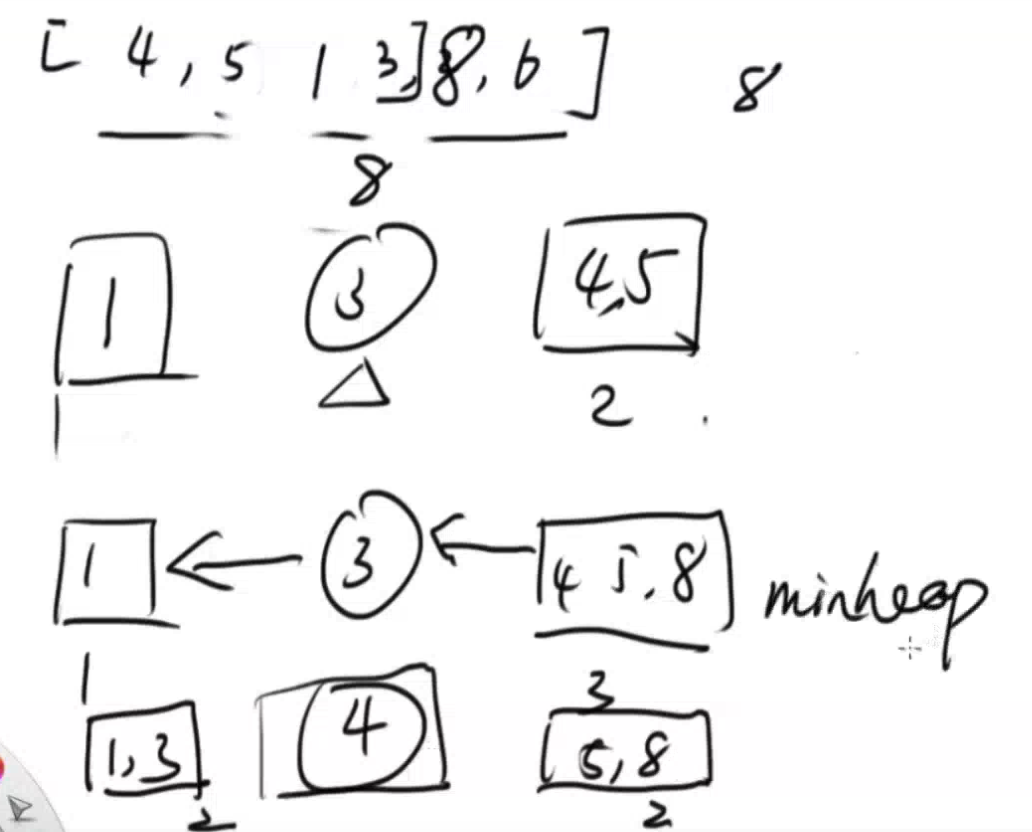 [ 4, 5 1 3,] 8, 6 ] 8
8
1 3 4,5
1 2
1 3 4 5, 8 minheap
1 3
1,3 4 5,8
2 2